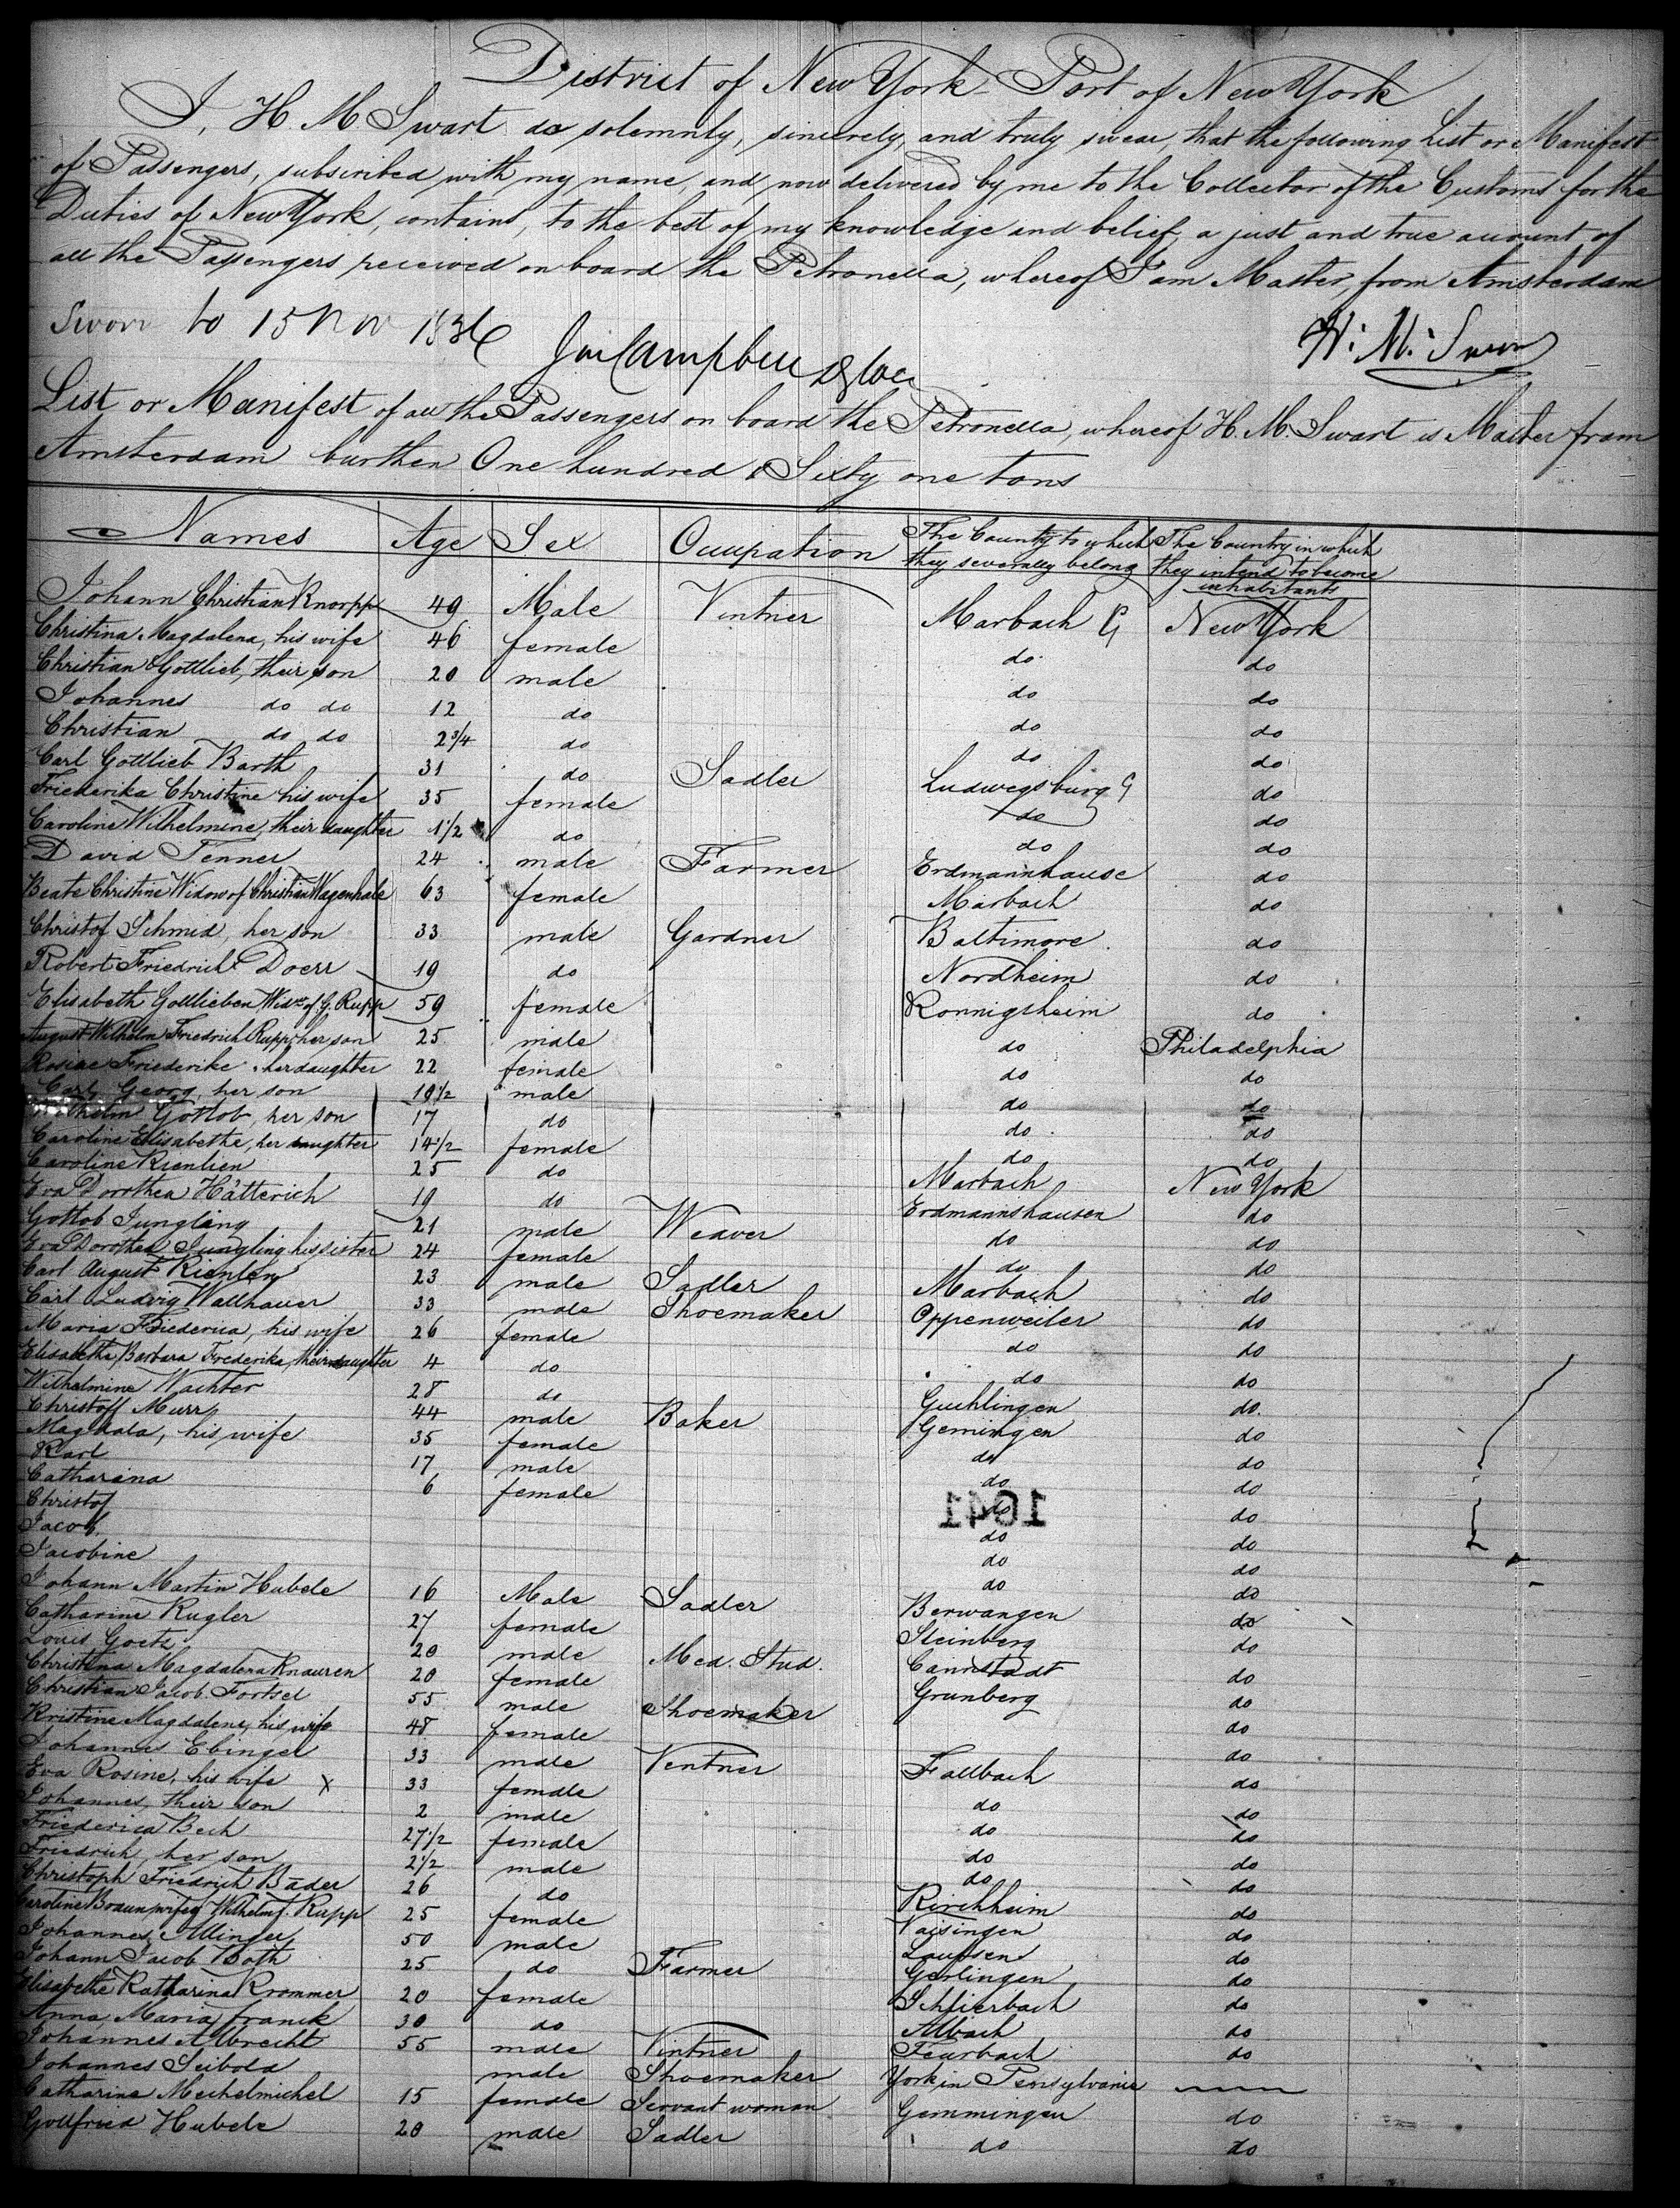 District of New York Port of New York
I, H. M. Swart do solemnly, sincerely, and truly swear, that the following List or Manifest
of Passengers, subscribed with my name, and now delivered by me to the Collector of the Customs for the
Duties of New York, contains, to the best of my knowledge and belief, a just and true account of
all the Passengers received on board the Petronella, whereof I am Master, from Amsterdam
Sworn to 15 Nov 1836 H. M. Swart
Campbell
List or Manifest of all the Passengers on board the Petronella, whereof H. M. Swart is Master from
Amsterdam burthen One hundred & Sixty one tons
Names Age Sex Occupation The County to which they severally belong The Country in which they intend to become inhabitants
Johann Christian Knorpp 49 Male Vintner Marbach New York
Christina Magdalena, his wife 46 female do do
Christian Gottlieb, their son 20 male do do
Johannes do do 12 do do do
Christian do do 2 3/4 do do do
Carl Gottlieb Barth 31 do Sadler Ludwegsburg do
Friederika Christine his wife 35 female do do
Caroline Wilhelmine, their daughter 1 1/2 do do do
David Tenner 24 male Farmer Erdmannhause do
Beate Christine Widow of Christian Wagenhals 63 female Marbach do
Christof Schmid her son 33 male Gardner Baltimore do
Robert Friedrich Doerr 19 do Nordheim do
Elisabeth Gottlieben Widw of G. Rupp 59 female Konnigsheim do
August Wilhelm Friedrich Rupp her son 25 male do Philadelphia
Rosine Friederike, her daughter 22 female do do
Carl Georg, her son 19 1/2 male do do
Wilhelm Gottlob, her son 17 do do do
Caroline Elisabethe, her daughter 14 1/2 female do do
Caroline Rienlien 25 do Marbach New York
Eva Dorothea Hätterich 19 do Erdmannshausen do
Gottob Jungling 21 male Weaver do do
Eva Dorothea Jungling his sister 24 female do do
Carl August Rienlen 23 male Sadler Marbach do
Carl Ludvig Wallhauer 33 male Shoemaker Oppenweiler do
Maria Friederica, his wife 26 female do do
Elisabetha Barbara Frederika, their daughter 4 do do do
Wilhelmine Wachter 28 do Guchlingen do
Christoff Murr 44 male Baker Gemingen do
Magdala, his wife 35 female do do
Karl 17 male do do
Catharina 6 female do do
Christof do do
Jacob do do
Jacobine do do
1641
Johann Martin Hubele 16 Male Sadler Berwangen do
Catharine Kugler 27 female Steinberg do
Louis Goetz 20 male Med. Stud. Cannstadt do
Christina Magdalena Knauren 20 female Grunberg do
Christian Jacob Fortsel 55 male Shoemaker do
Kristine Magdalene, his wife 48 female do
Johannes Ebingel 33 male Ventner Fallbach do
Eva Rosine, his wife X 33 female do do
Johannes, their son 2 male do do
Friederica Bech 27 1/2 female do do
Friedrich, her son 2 1/2 male do do
Christoph Friedrich Bader 26 do Kirchheim do
Caroline Braun, wife of Wilhelm F. Rupp 25 female Vaisingen do
Johannes Allinger 50 male Lauffen do
Johann Jacob Woth 25 do Farmer Gerlingen do
Elisabethe Katharina Krommer 20 female Schlierbach do
Anna Maria Franck 30 do Albach do
Johannes Albrecht 55 male Vintner Feurbach do
Johannes Seibold male Shoemaker York in Pensylvanie
Catharine Mechelmichel 15 female Servant woman Gemmingen do
Gottfried Hubele 20 male Sadler do do